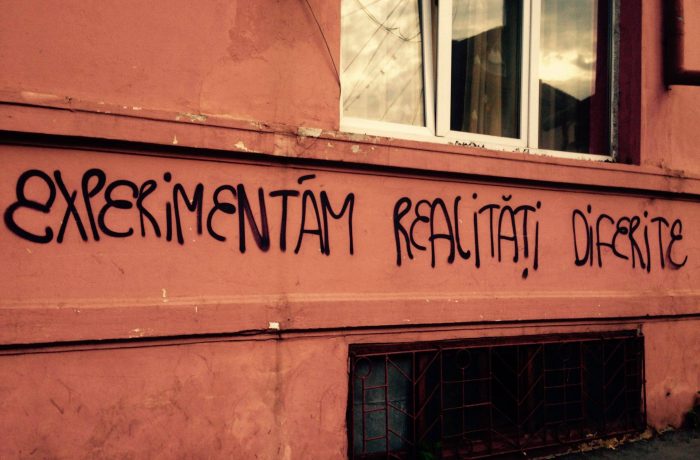 EXPERIMENTĂM REALITĂȚI DIFERITE